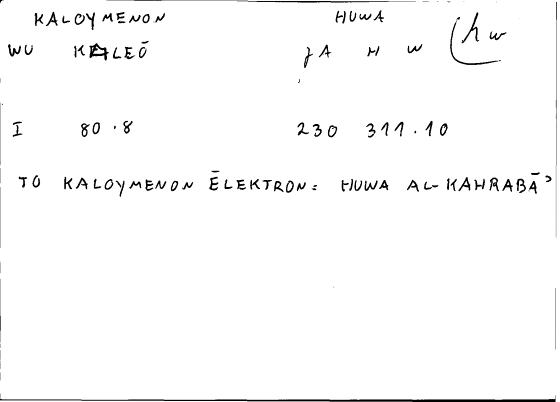 KALOYMENON HUWA
WU KALEŌ JA H W (hw
I 80.8 230 311.10
TO KALOYMENON ĒLEKTRON: HUWA AL-KAHRABĀʾ